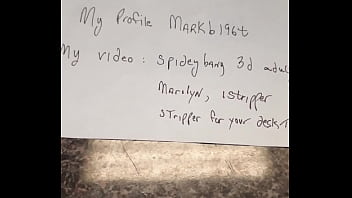 My Profile MARKb196t
My video: Spideybang 3d adu
Marilyn, iStripper
STripper for your desk